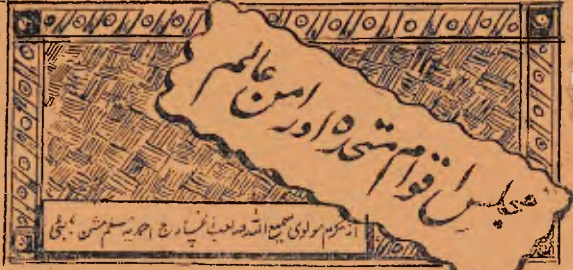 مجلس اقوام متحدہ اور امن عالم
از مکرم مولوی سمیع اللہ صاحب انچارج احمدیہ مسلم مشن بمبئی